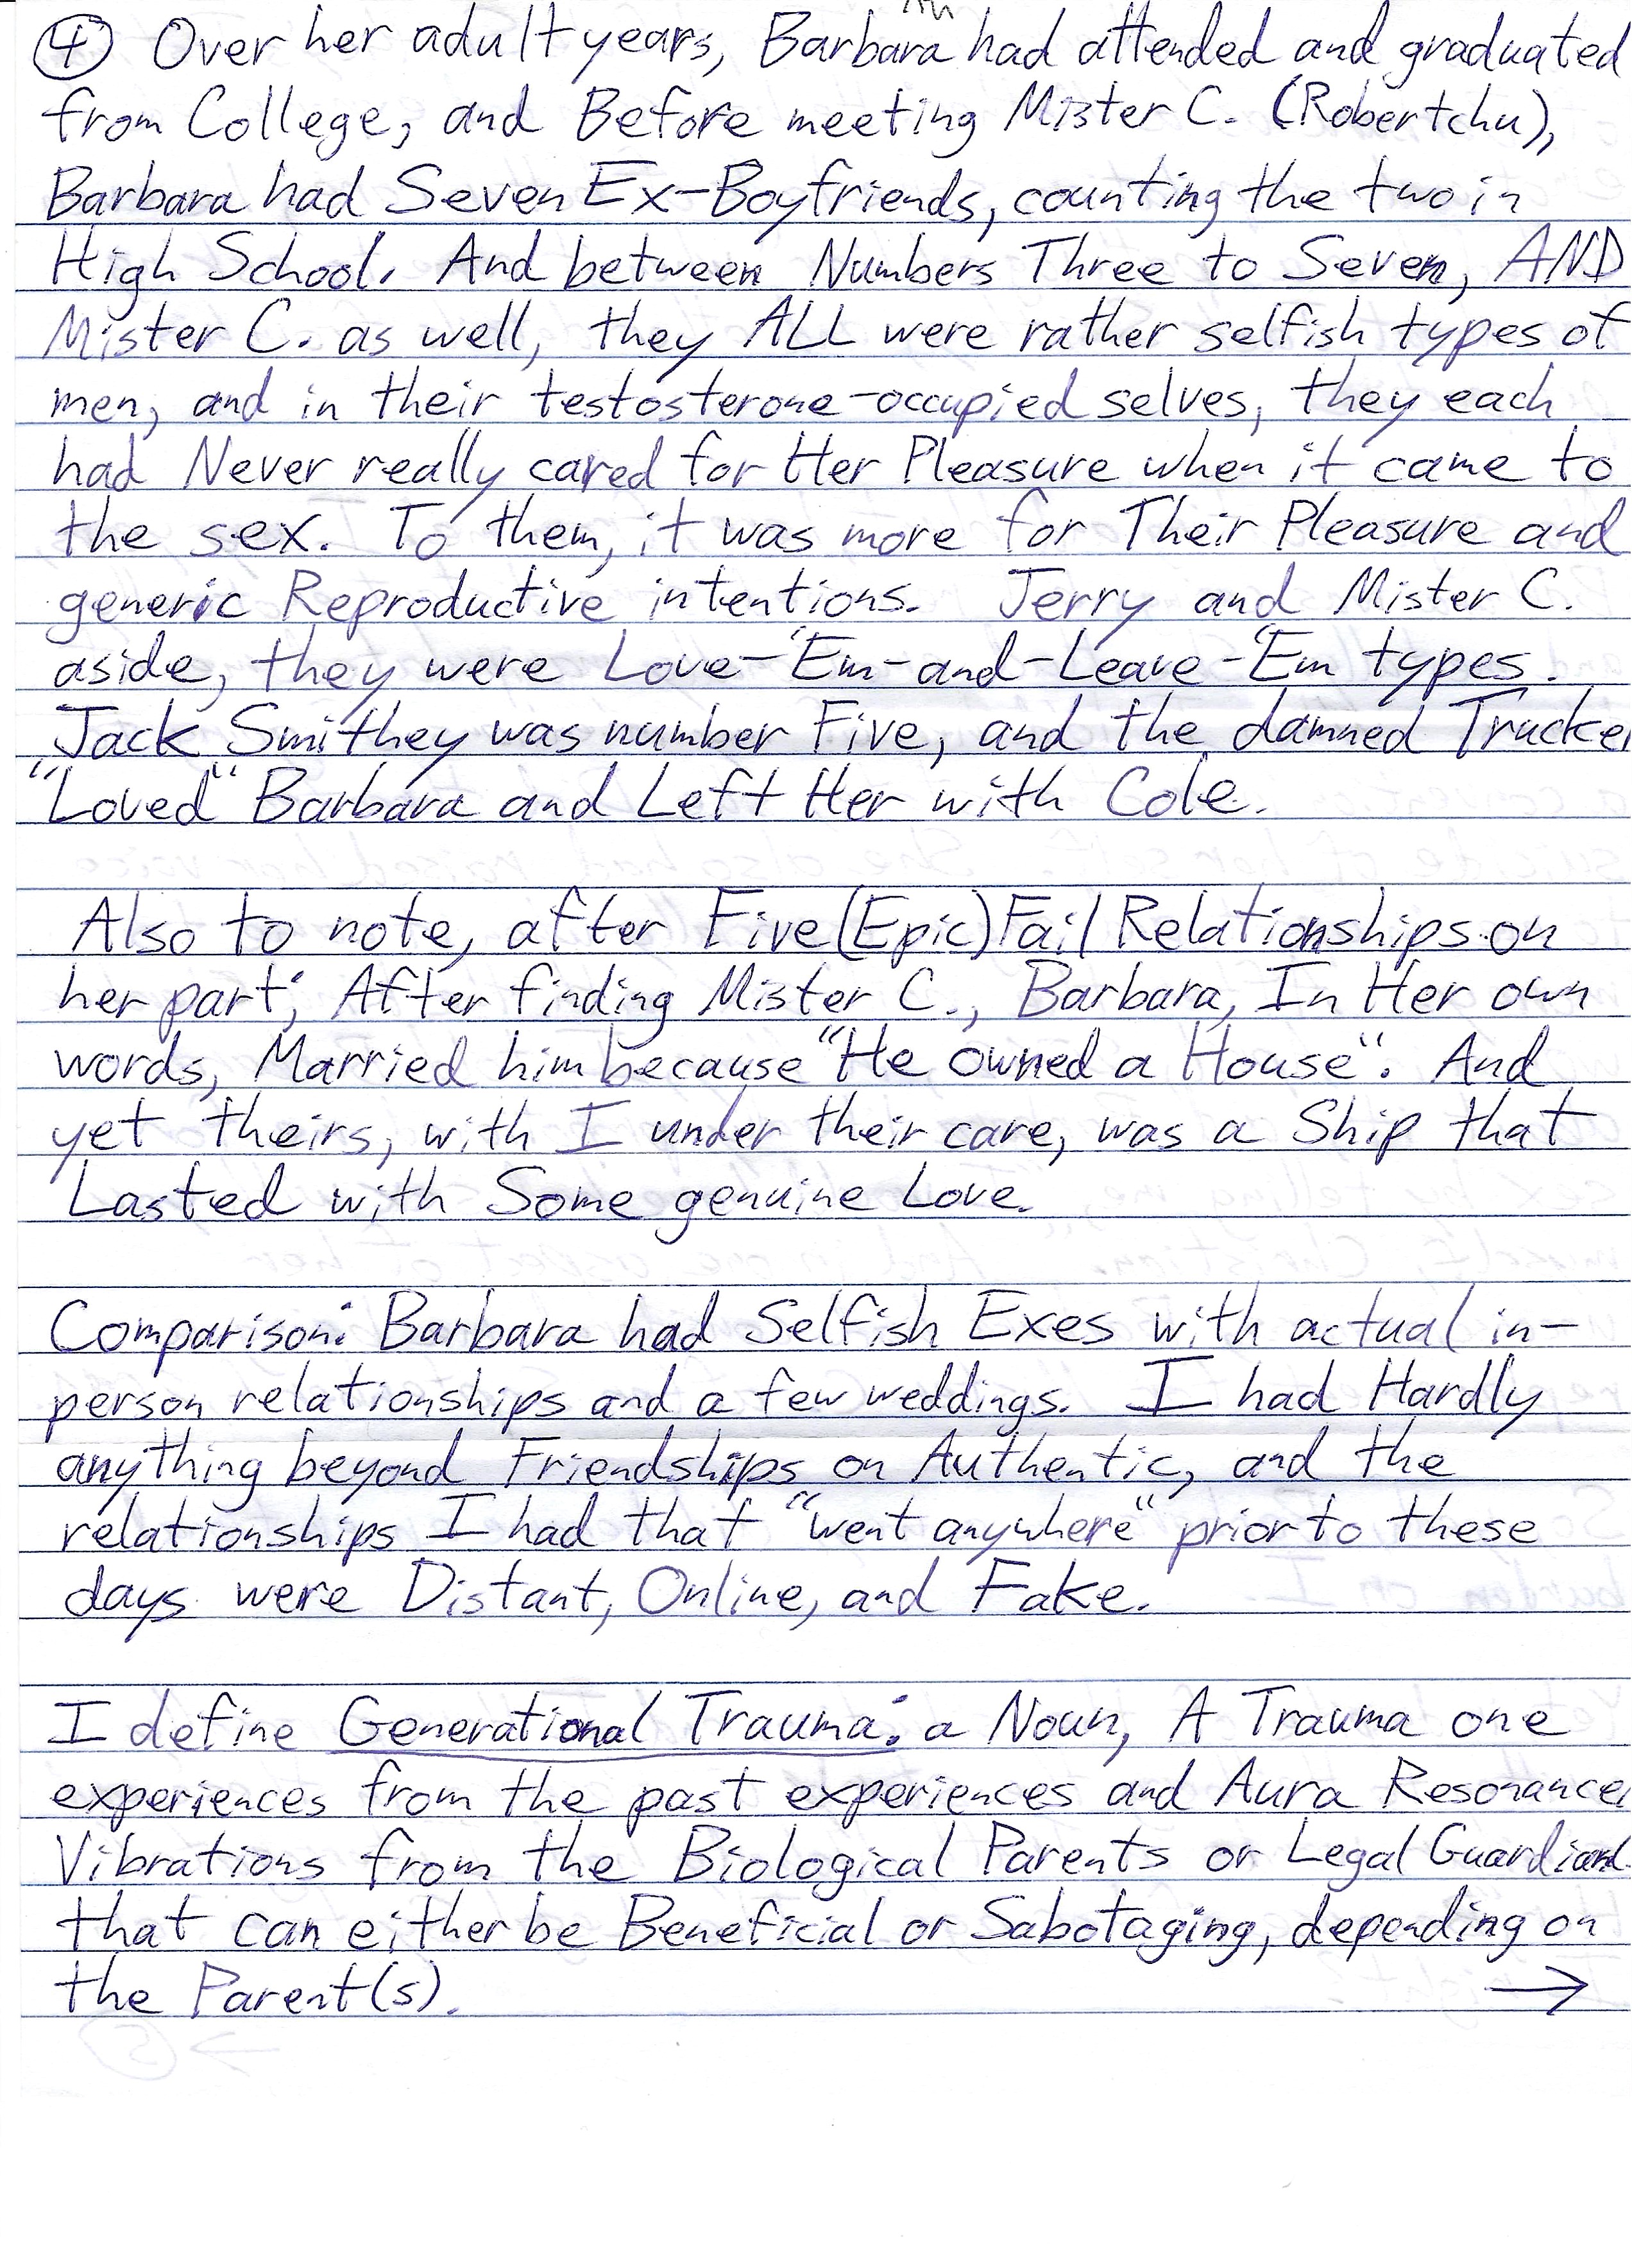 ④ Over her adult years, Barbara had attended and graduated
from College, and Before meeting Mister C. (Robertchu),
Barbara had Seven Ex-Boyfriends, counting the two in
High School. And between Numbers Three to Seven, AND
Mister C. as well, they ALL were rather selfish types of
men, and in their testosterone-occupied selves, they each
had Never really cared for Her Pleasure when it came to
the sex. To them, it was more for Their Pleasure and
generic Reproductive intentions. Jerry and Mister C.
aside, they were Love-'Em-and-Leave-'Em types.
Jack Smithey was number Five, and the damned Trucker
"Loved" Barbara and Left Her with Cole.
Also to note, after Five (Epic) Fail Relationships on
her part; After finding Mister C., Barbara, In Her own
words, Married him because "He owned a House". And
yet theirs, with I under their care, was a Ship that
Lasted with Some genuine Love.
Comparison: Barbara had Selfish Exes with actual in-
person relationships and a few weddings. I had Hardly
anything beyond Friendships on Authentic, and the
relationships I had that "went anywhere" prior to these
days were Distant, Online, and Fake.
I define Generational Trauma: a Noun, A Trauma one
experiences from the past experiences and Aura Resonance
Vibrations from the Biological Parents or Legal Guardians
that can either be Beneficial or Sabotaging, depending on
the Parent(s). →